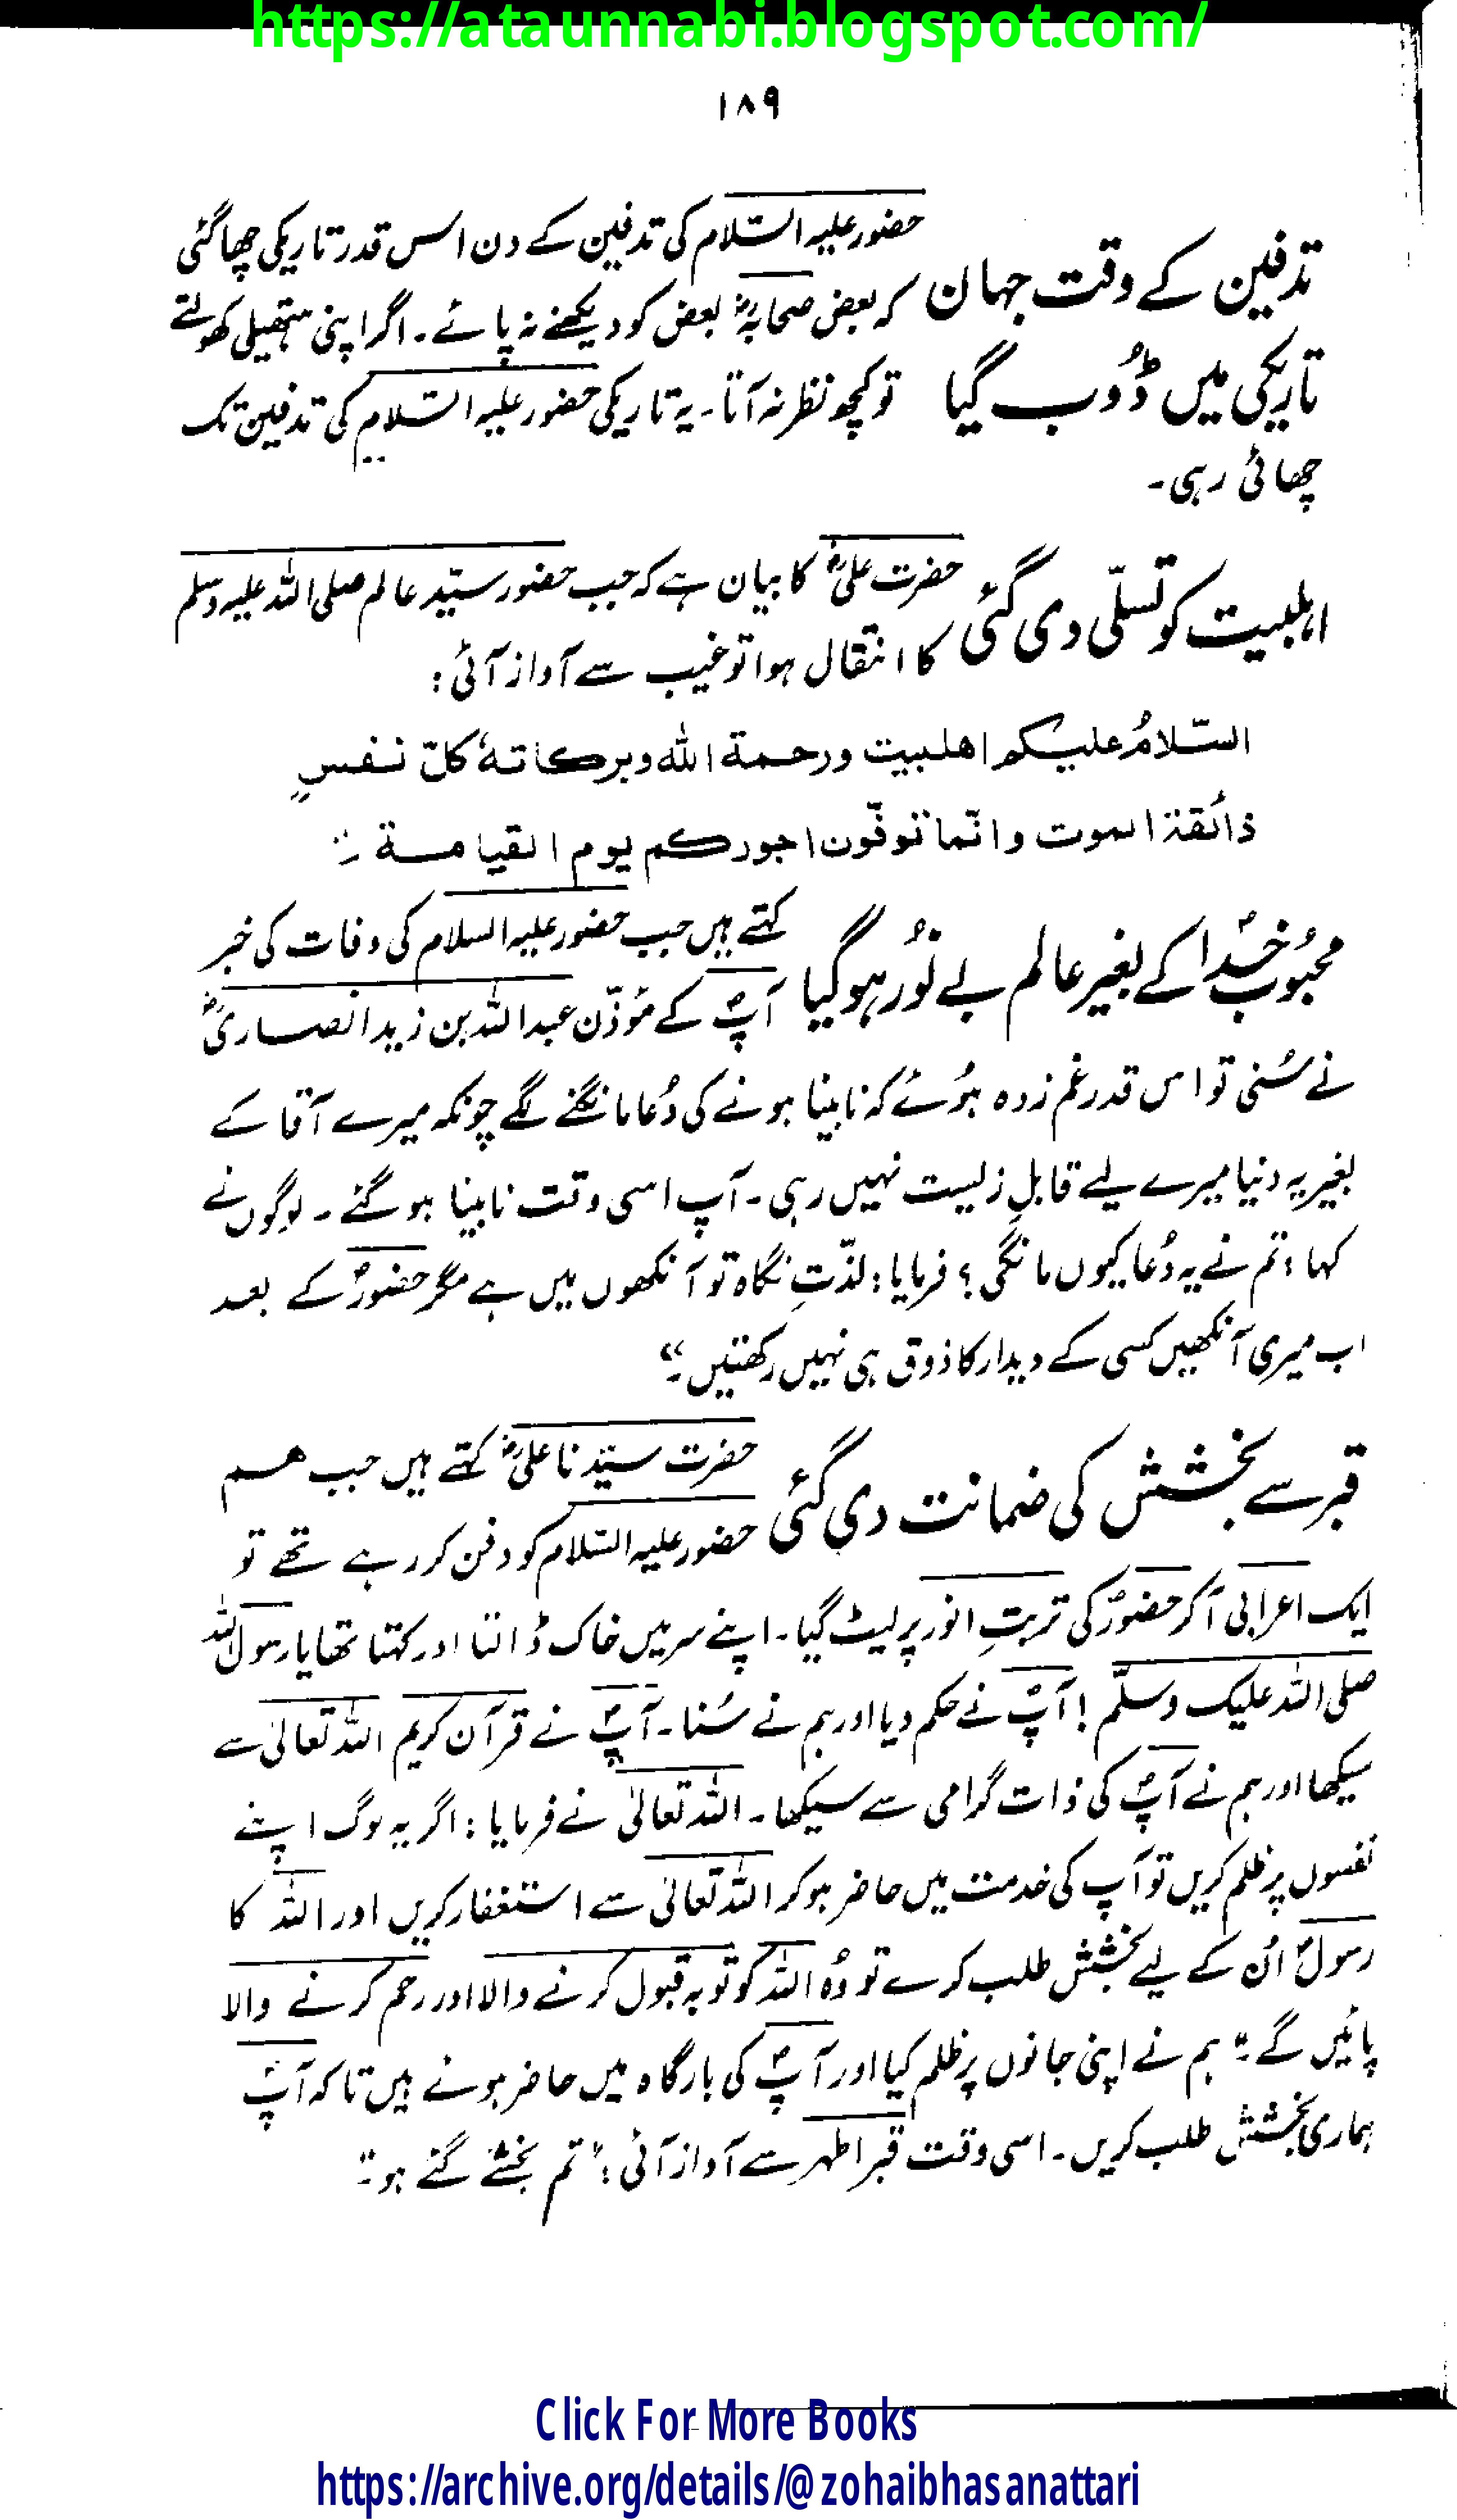 https://ataunnabi.blogspot.com/
۱۸۹
حضور علیہ السّلام کی تدفین کے دن اس قدر تاریکی چھا گئی
تدفین کے وقت جہان
کہ بعض صحابہؓ بعض کو دیکھنے نہ پائے۔ اگر اپنی ہتھیلی کھولتے
تاریکی میں ڈُوب گیا
تو کچھ نظر نہ آتا۔ یہ تاریکی حضور علیہ السّلام کی تدفین تک
چھائی رہی۔
حضرت علیؓ کا بیان ہے کہ جب حضور سیّد عالم صلی اللہ علیہ وسلم
اہلبیت کو تسلّی دی گئی
کا انتقال ہوا تو غیب سے آواز آئی :
السّلامُ علیکم اھلبیت ورحمة الله وبركاتهٗ كلّ نفسٍ
ذائقۃ الموت وانّما توفّون اجوركم يوم القيامة ۔"
کہتے ہیں جب حضور علیہ السلام کی وفات کی خبر
محبُوبِ خدؐا کے بغیر عالم بے نُور ہوگیا
آپؐ کے مؤذّن عبداللہ بن زید انصاریؓ
نے سُنی تو اس قدر غم زدہ ہُوئے کہ نابینا ہونے کی دُعا مانگنے لگے چونکہ میرے آقا کے
بغیر یہ دنیا میرے لیے قابلِ زیست نہیں رہی۔ آپ اسی وقت نابینا ہو گئے۔ لوگوں نے
کہا : تم نے یہ دُعا کیوں مانگی ؟ فرمایا : لذّتِ نگاہ تو آنکھوں میں ہے مگر حضورؐ کے بعد
اب میری آنکھیں کسی کے دیدار کا ذوق ہی نہیں رکھتیں۔"
حضرت سیّدنا علیؓ کہتے ہیں جب ہم
قبر سے بخشش کی ضمانت دی گئی
حضور علیہ السّلام کو دفن کر رہے تھے تو
ایک اعرابی آکر حضورؐ کی تربتِ انور پر لیٹ گیا۔ اپنے سر میں خاک ڈالتا اور کہتا تھا یا رسول اللہ
صلی اللہ علیک وسلّم ! آپؐ نے حکم دیا اور ہم نے سُنا۔ آپؐ نے قرآن کریم اللہ تعالیٰ سے
سیکھا اور ہم نے آپؐ کی ذات گرامی سے سیکھا۔ اللہ تعالیٰ نے فرمایا : اگر یہ لوگ اپنے
نفسوں پر ظلم کریں تو آپ کی خدمت میں حاضر ہو کر اللہ تعالیٰ سے استغفار کریں اور اللہ کا
رسولؐ اُن کے لیے بخشش طلب کرے تو وُہ اللہ کو توبہ قبول کرنے والا اور رحم کرنے والا
پائیں گے۔" ہم نے اپنی جانوں پر ظلم کیا اور آپؐ کی بارگاہ میں حاضر ہوئے ہیں تاکہ آپؐ
ہماری بخشش طلب کریں۔ اسی وقت قبر اطہر سے آواز آئی : "تم بخشے گئے ہو۔"
Click For More Books
https://archive.org/details/@zohaibhasanattari